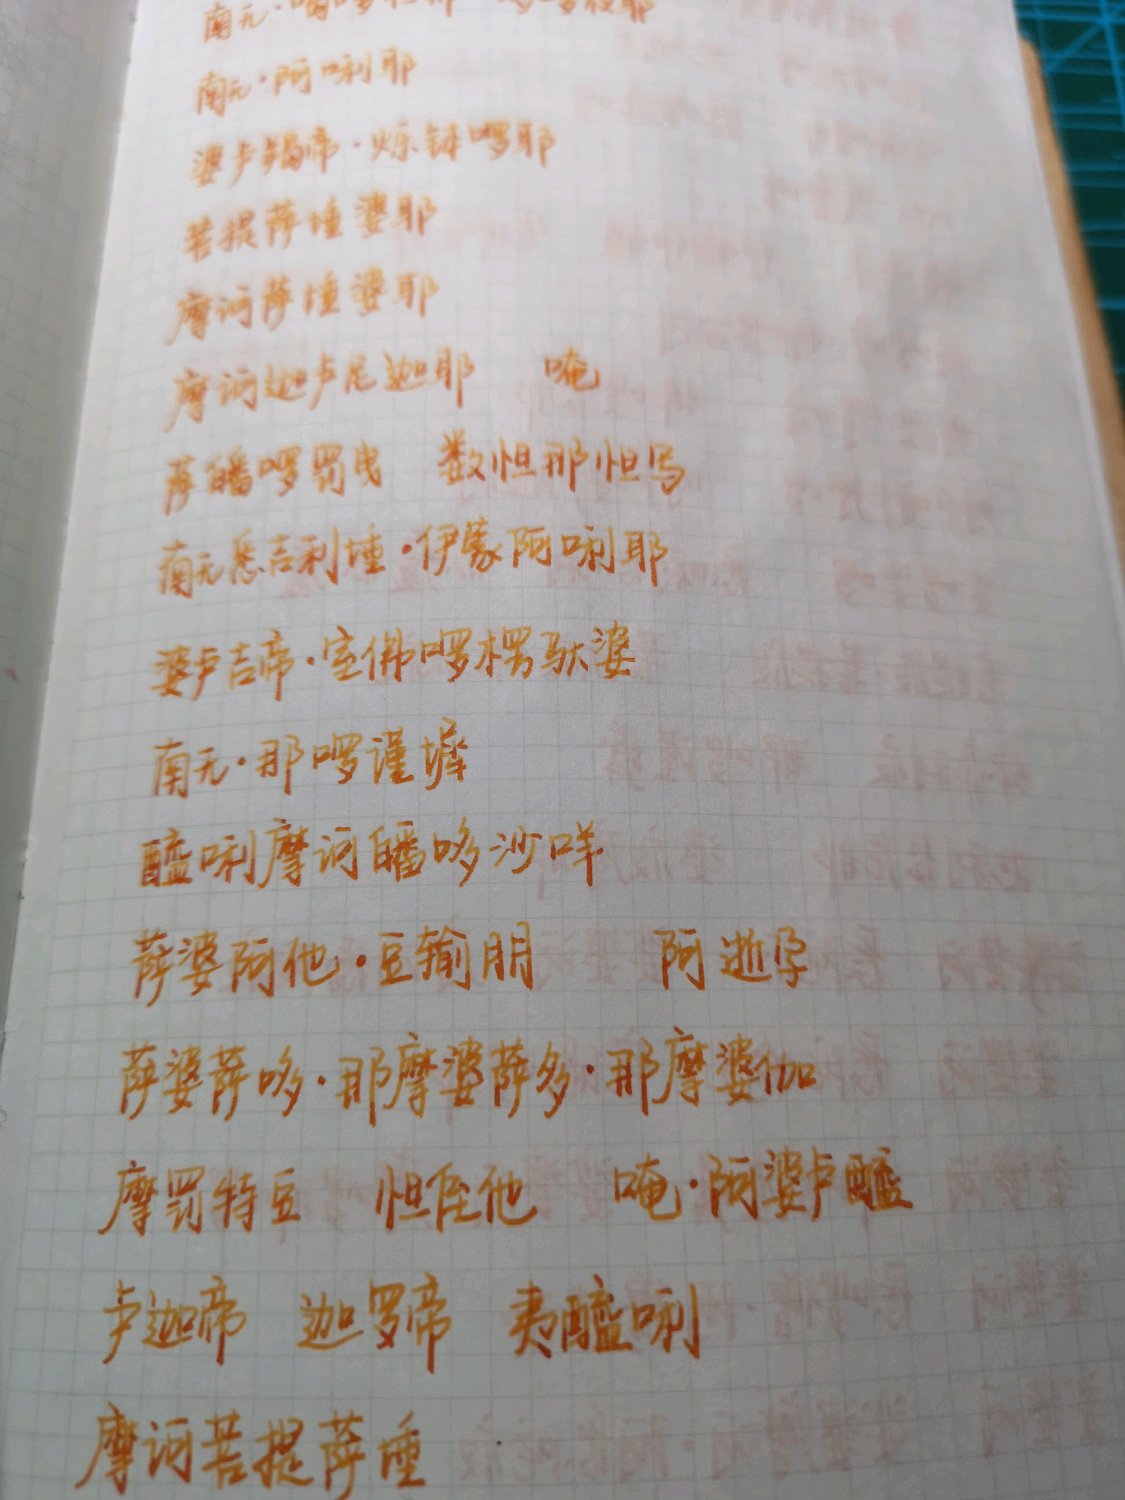 南无·喝啰怛那 哆啰夜耶
南无·阿唎耶
婆卢羯帝·烁钵啰耶
菩提萨埵婆耶
摩诃萨埵婆耶
摩诃迦卢尼迦耶 唵
萨皤啰罚曳 数怛那怛写
南无悉吉利埵·伊蒙阿唎耶
婆卢吉帝·室佛啰楞驮婆
南无·那啰谨墀
醯唎摩诃皤哆沙咩
萨婆阿他·豆输朋 阿逝孕
萨婆萨哆·那摩婆萨多·那摩婆伽
摩罚特豆 怛侄他 唵·阿婆卢醯
卢迦帝 迦罗帝 夷醯唎
摩诃菩提萨埵